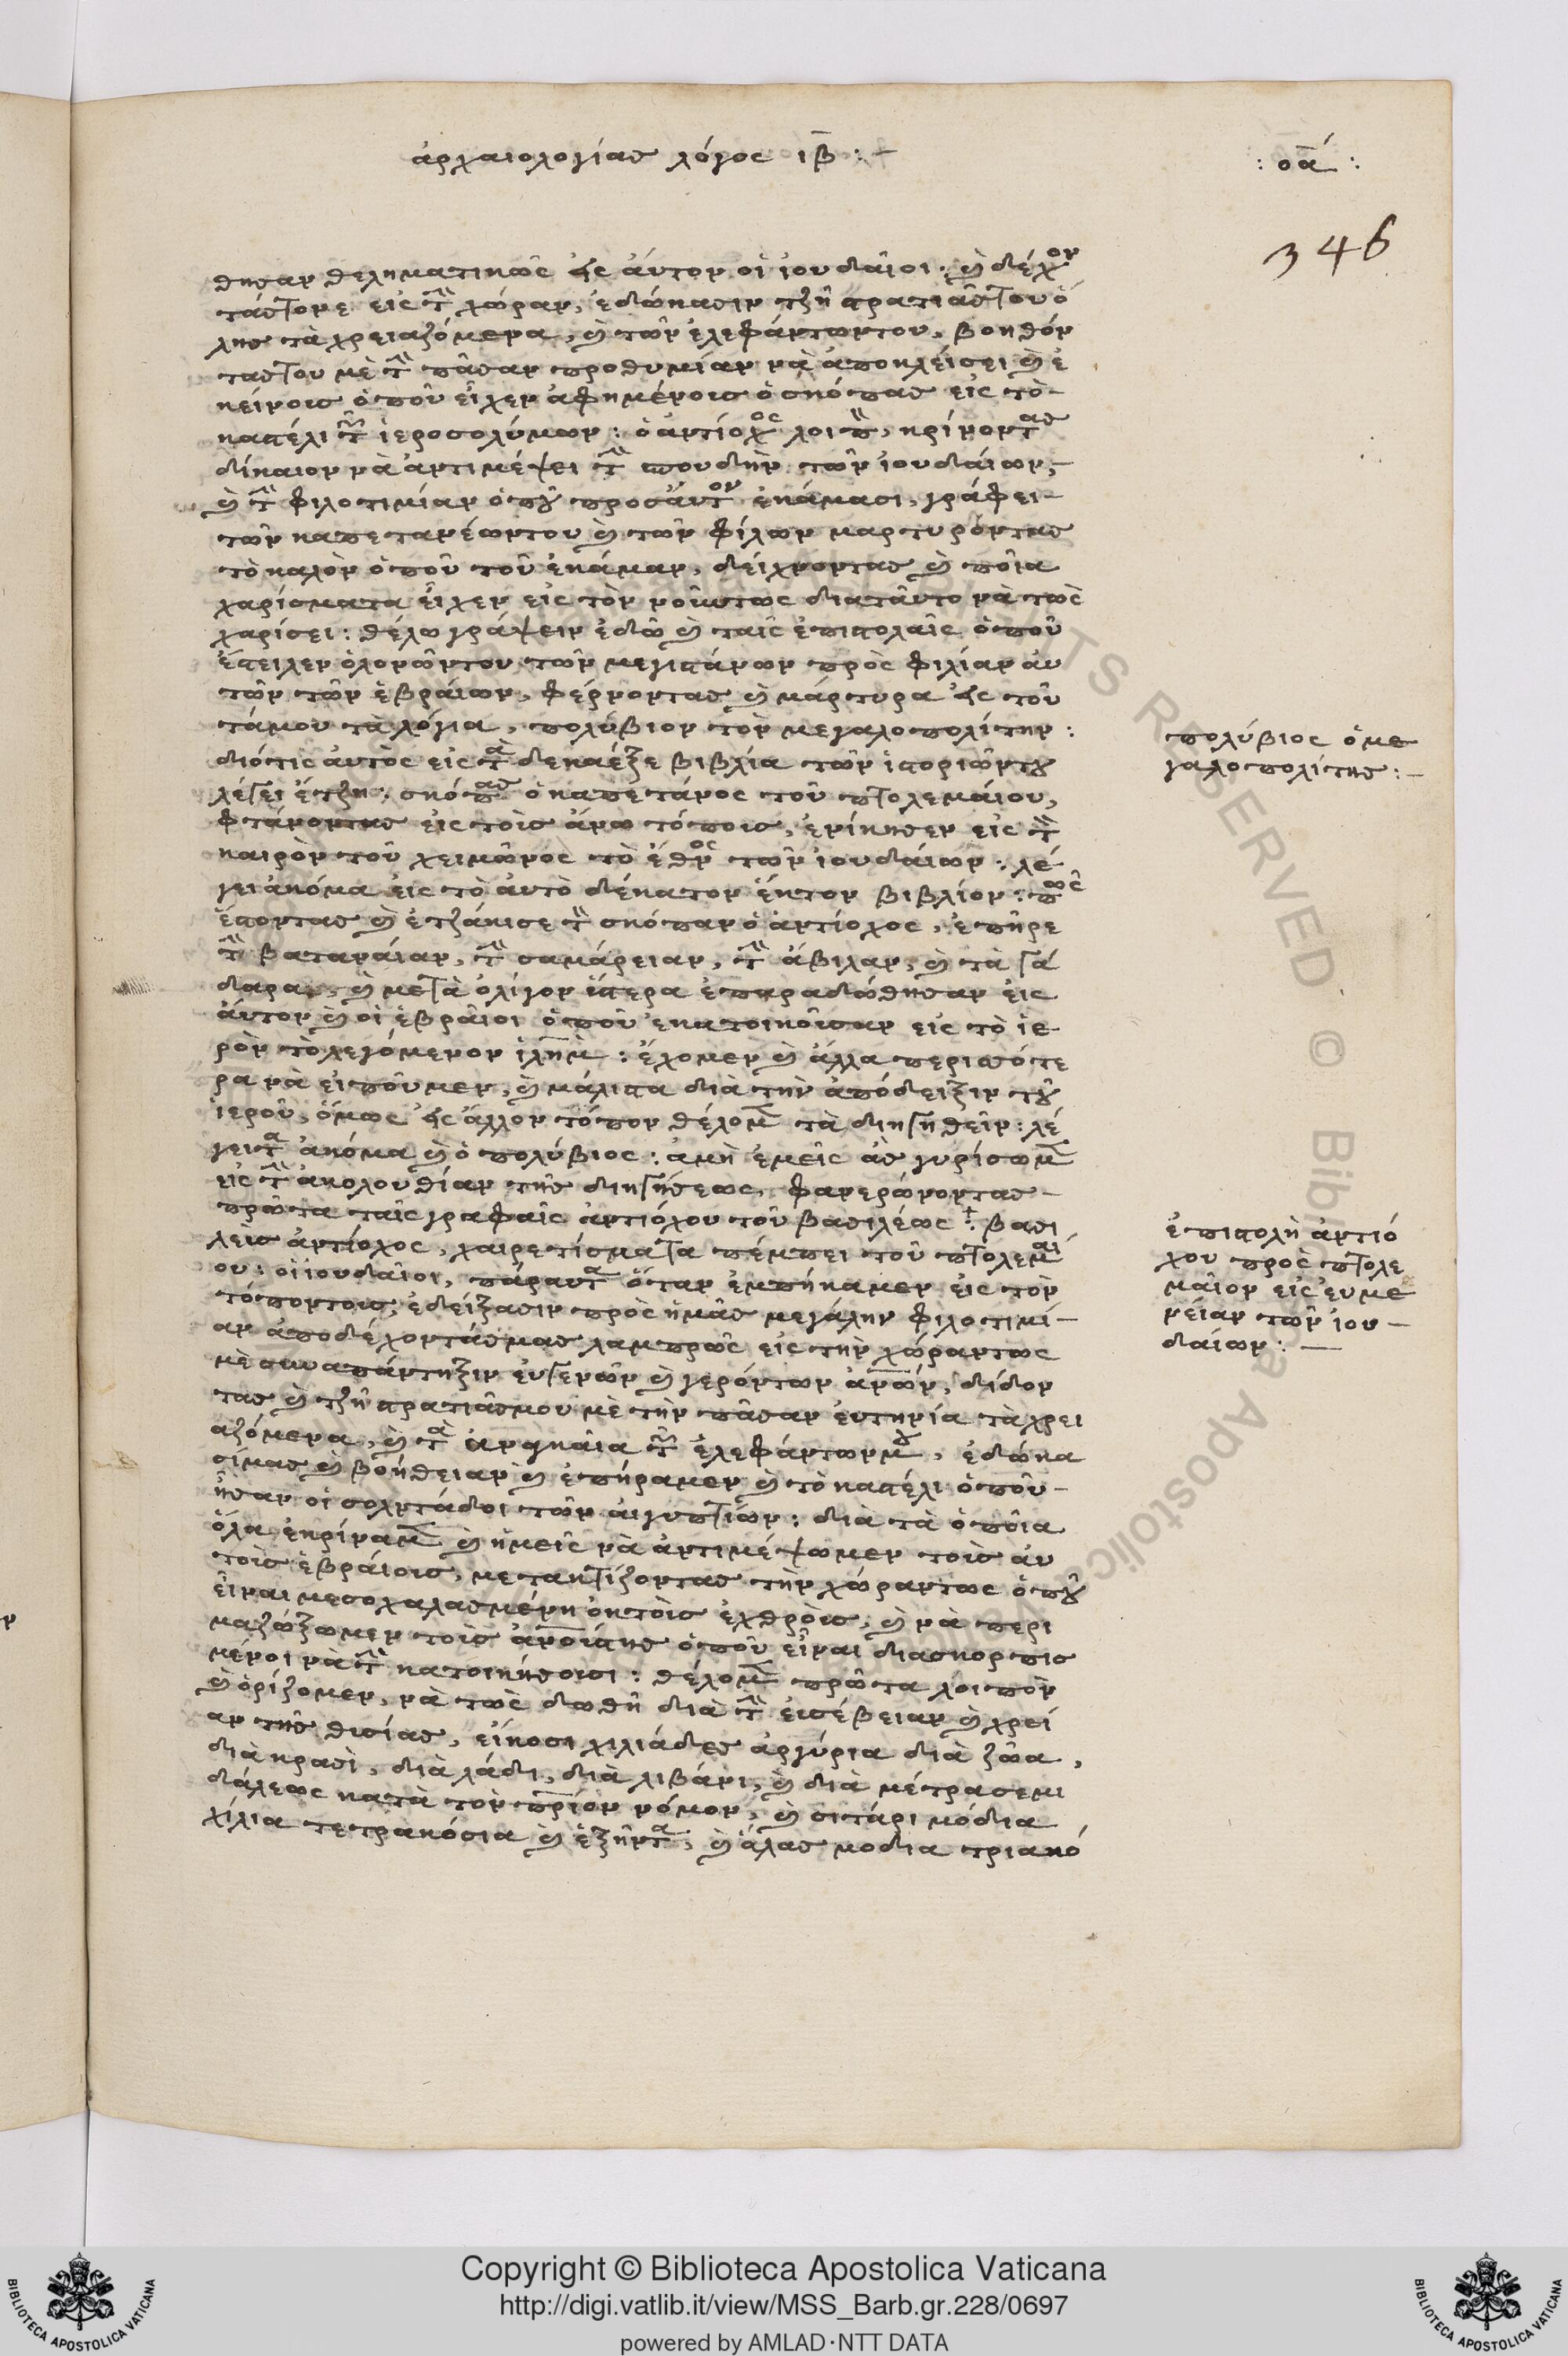 ἀρχαιολογίας λόγος ιβ :-
: οα :
346
θησαν θεληματικῶς εἰς ἀυτον οἱ ἰουδαῖοι· καὶ δέχον
τάςτονε εἰς τὴν χώραν, ἐδώκασιν τζῆ στρατιᾶςτου ὁ
λης τὰ χρειαζόμενα, καὶ τῶν ἐλεφάντωντου, βοηθόν
ταςτου μὲ τὴν πᾶσαν προθυμίαν νὰ ἀποκλείσει καὶ ἐ
κείνους ὁποῦ εἶχεν ἀφημένους ὁ σκόπας εἰς τὸ-
καστέλι τῶν ἱεροσολύμων : ὁ ἀντίοχος λοιπὸν, κρίνοντας
δίκαιον νὰ ἀντιμέψει τὴν σπουδὴν τῶν ἰουδάιων,-
καὶ τὴν φιλοτιμίαν ὁποῦ προς ἀυτὸν ἐκάμασι, γράφει-
τῶν καπετανέωντου καὶ τῶν φίλων μαρτυρόντας
τὸ καλὸν ὁποῦ τοῦ ἐκάμαν, δείχνοντας καὶ ποῖα
χαρίσματα εἶχεν εἰς τὸν νοῦντως διατᾶυτο νὰ τως
χαρίσει : θέλω γράψειν ἐδῶ καὶ ταῖς ἐπιστολαῖς ὁποῦ
ἔστειλεν ὁλονῶντου τῶν μεγιστάνων πρὸς φιλίαν ἀυ
τῶν τῶν ἑβράιων, φέρνοντας καὶ μάρτυρα εἰς τοῦ
τάμου τὰ λόγια, πολύβιον τὸν μεγαλοπολίτην :
διότις ἀυτὸς εἰς τὰ δεκαέξε βιβλία τῶν ἱστοριῶντου
λέγει ἔτζη : σκόπας ὁ καπετάνος τοῦ πτολεμάιου,
φτάνοντας εἰς τοὺς ἄνω τόπους, ἐνίκησεν εἰς τὸν
καιρὸν τοῦ χειμῶνος τὸ ἔθνος τῶν ἰουδάιων : λέ
γει ἀκόμα εἰς τὸ ἀυτὸ δέκατον ἕκτον βιβλίον : πῶς
ἔστοντας καὶ ἐτζάκισε τὸν σκόπαν ὁ ἀντίοχος, ἐπῆρε
τὴν βαταναίαν, τὴν σαμάρειαν, τὴν ἄβιλαν, καὶ τὰ γά
δαρα, καὶ μετὰ ὀλίγον ὕστερα ἐπαραδώθησαν εἰς
ἀυτον καὶ οἱ ἑβραῖοι ὁποῦ ἐκατοικοῦσαν εἰς τὸ ἱε
ρὸν τὸ λεγόμενον ἱλημ : ἔχομεν καὶ ἄλλα περισσότε
ρα νὰ εἰποῦμεν, καὶ μάλιστα διὰ τὴν ἀπόδειξιν τοῦ
ἱεροῦ, ὅμως εἰς ἄλλον τόπον θέλομεν τὰ διηγηθεῖν : λέ
γειτα ἀκόμα καὶ ὁ πολύβιος : ἀμὴ ἐμεῖς ἂς γυρίσωμεν
εἰς τὴν ἀκολουθίαν τῆς διηγήσεως, φανερώνοντας-
πρῶτα ταῖς γραφαῖς ἀντιόχου τοῦ βασιλέως : βασι
λευς ἀντίοχος, χαιρετίσματα πέμπει τοῦ πτολεμαι
ου : οἱ ἰουδαῖοι, πάραυτα ὅταν ἐμπήκαμεν εἰς τὸν
τόποντους, ἐδείξασιν πρὸς ἡμᾶς μεγάλην φιλοτιμί-
αν ἀποδέχοντάςμας λαμπρῶς εἰς τὴν χώραντως
μὲ συναπάντηξιν ἐυγενῶν καὶ γερόντων ἀνων, δίδον
τας καὶ τζῆ στρατιᾶςμου μὲ τὴν πᾶσαν ἐυτηρία τὰ χρει
αζόμενα, καὶ τὰ ἀναγκαῖα τῶν ἐλεφάντωνμου, ἐδώκα
σίμας καὶ βοήθειαν καὶ ἐπήραμεν καὶ τὸ καστέλι ὁποῦ-
ἦσαν οἱ σολντάδοι τῶν ἀιγυπτίων : διὰ τὰ ὁποῖα
ὅλα ἐκρίναμεν καὶ ἡμεῖς νὰ ἀντιμέψωμεν τοὺς ἀυ
τοὺς ἑβράιους, μετακτίζοντας τὴν χώραντως ὁποῦ
εἶναι μεσοχαλασμένη ὀκτοὺς ἐχθροὺς, καὶ νὰ περι
μαζώξωμεν τοὺς ἀνούςτης ὁποῦ εἶναι διασκορπισ
μένοι νὰ τὴν κατοικήσουσι : θέλομεν πρῶτα λοιπὸν
καὶ ὁρίζομεν, νὰ τως δωθῆ διὰ τὴν ἐυσέβειαν καὶ χρεί
αν τῆς θυσίας, εἴκοσι χιλιάδες ἀργύρια διὰ ζῶα,
διὰ κρασὶ, διὰ λάδι, διὰ λιβάνι, καὶ διὰ μέτρα σεμι
δάλεως κατὰ τὸν πριον νόμον, καὶ σιτάρι μόδια
χίλια τετρακόσια καὶ ἑξήντα, καὶ ἅλας μοδια τριακό
πολύβιος ὁ με
γαλοπολίτης :-
ἐπιστολὴ ἀντιό
χου πρὸς πτολε
μαῖον εἰς ἐυμε
νείαν τῶν ἰου-
δαίων :-
Copyright © Biblioteca Apostolica Vaticana
http://digi.vatlib.it/view/MSS_Barb.gr.228/0697
powered by AMLAD·NTT DATA
BIBLIOTECA APOSTOLICA VATICANA
BIBLIOTECA APOSTOLICA VATICANA